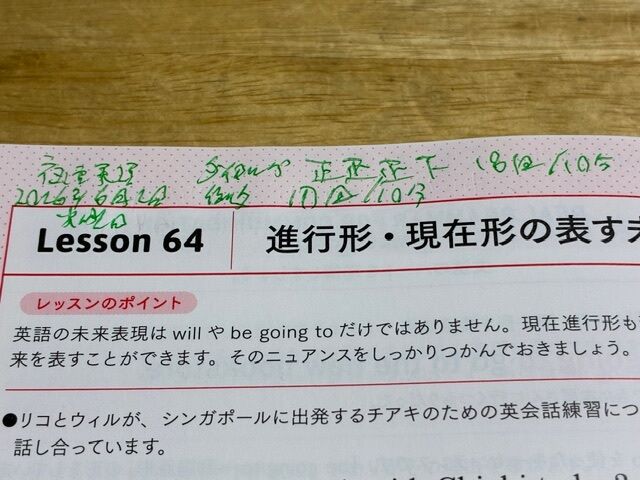 正正正下 18回/10分
2026年6月2日 17回/10分
Lesson 64 進行形・現在形の表す
レッスンのポイント
英語の未来表現は will や be going to だけではありません。現在進行形も
来を表すことができます。そのニュアンスをしっかりつかんでおきましょう。
●リコとウィルが、シンガポールに出発するチアキのための英会話練習につ
話し合っています。